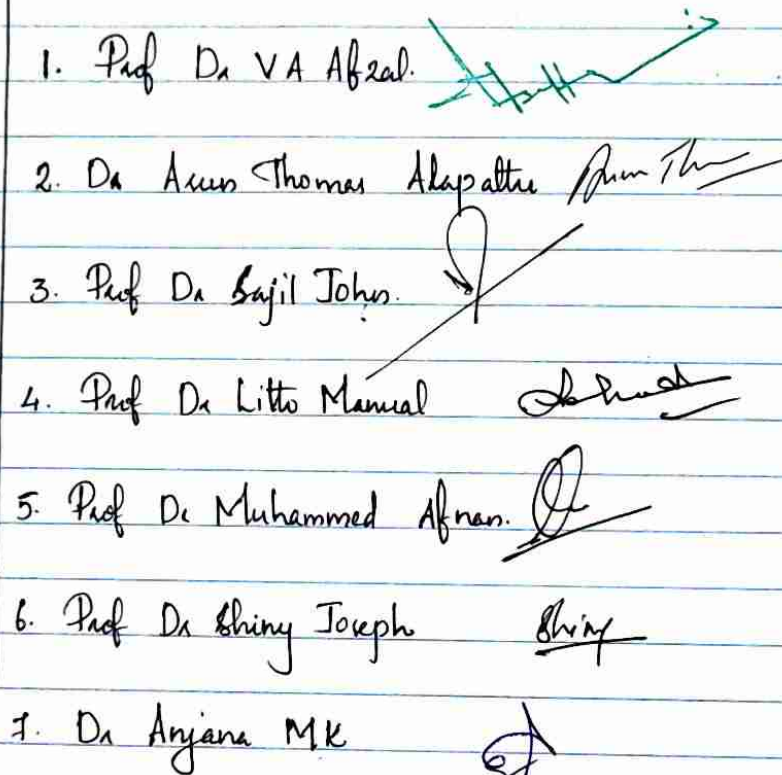 1. Prof Dr V A Afzal.
2. Dr Arun Thomas Alapattu Arun Tho
3. Prof Dr Sajil John.
4. Prof Dr Litto Manual
5. Prof Dr Muhammed Afnan.
6. Prof Dr Shiny Joseph Shiny
7. Dr Anjana MK